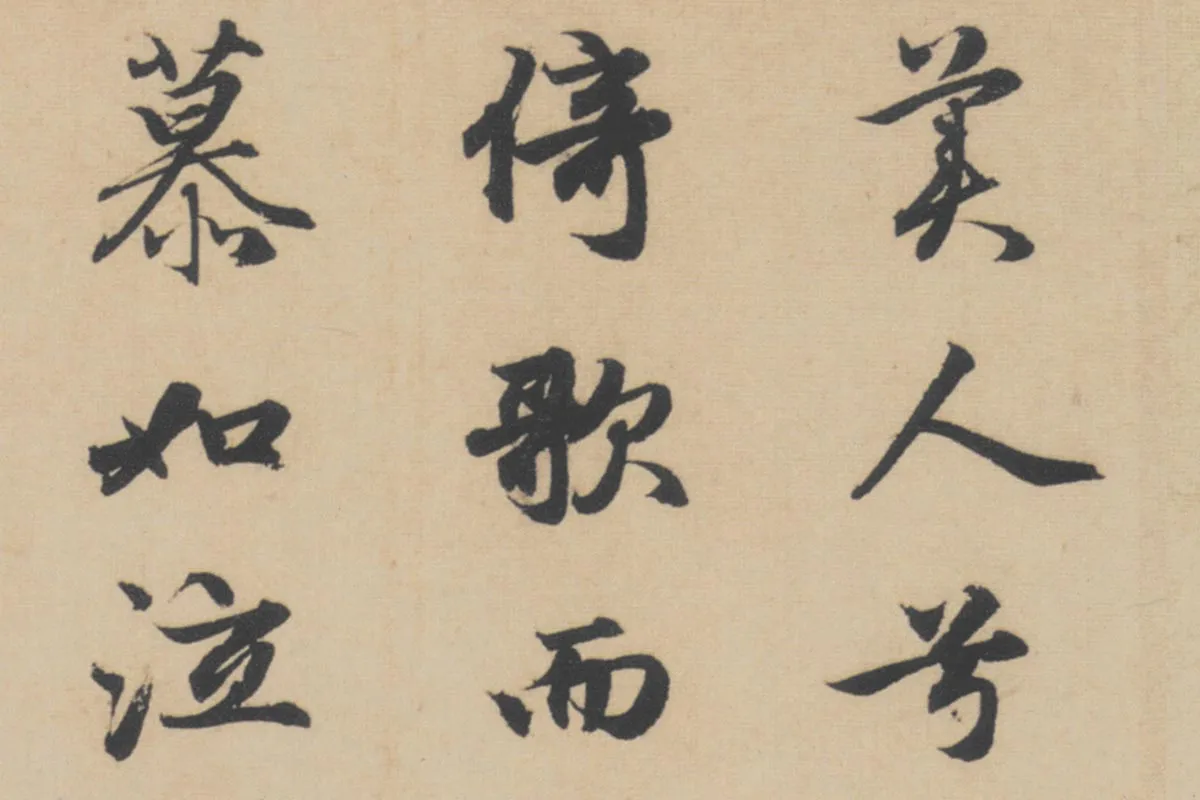 美人兮
倚歌而
慕如泣